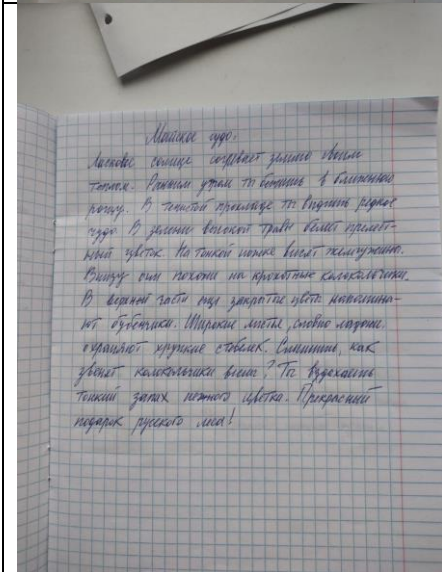 Майское чудо.
Ласковое солнце согревает землю своим
теплом. Ранним утром ты бежишь в ближнюю
рощу. В тенистой прохладе ты видишь редкое
чудо. В зелени высокой травы белеет
ный цветок. На тонкой ножке висят жемчужины.
Внизу они похожи на крохотные колокольчики.
В верхней части еще закрытые цветы напомина-
ют бубенчики. Широкие листья, словно ладони
охраняют хрупкие стебельки. Слышишь, как
звенят колокольчики весны? Ты вдыхаешь
тонкий запах нежного цветка. Прекрасный
подарок русского леса!